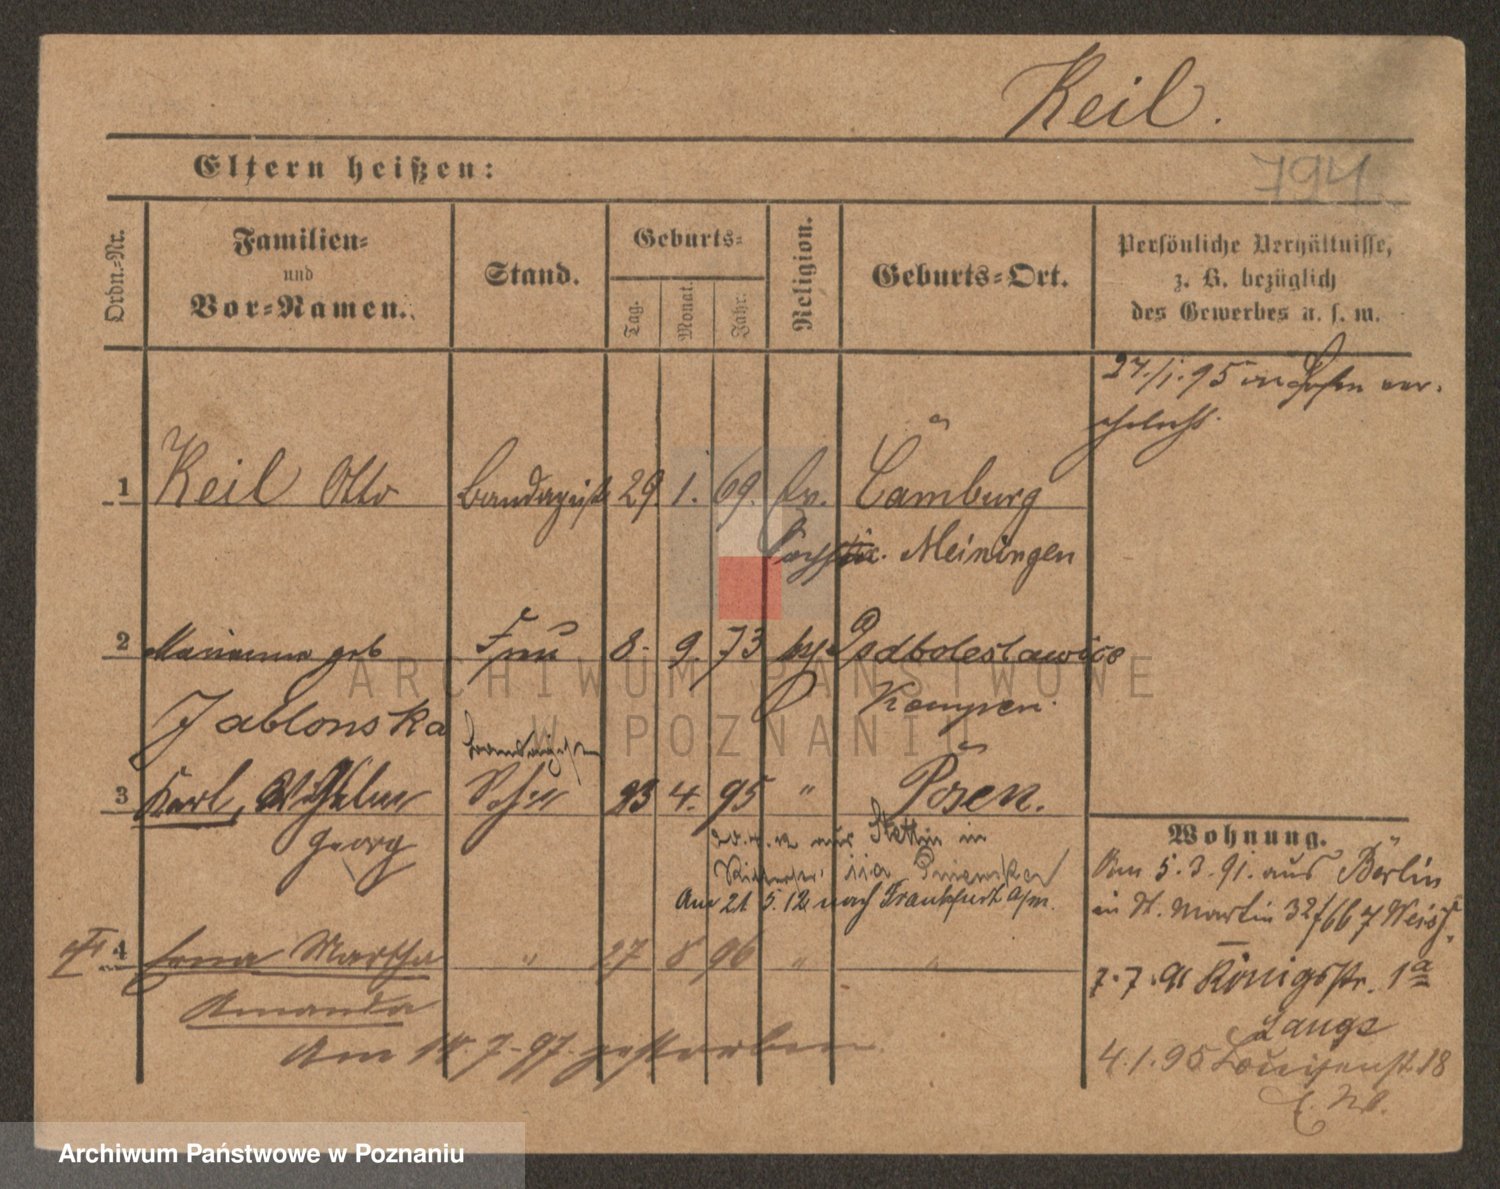 Keil.
Eltern heißen:
794
Ordn.-Nr.
Familien-
und
Vor-Namen.
Stand.
Geburts-
Tag.
Monat.
Jahr.
Religion.
Geburts-Ort.
Persönliche Verhältnisse,
z. B. bezüglich
des Gewerbes u. s. w.
27./1.95 in Posen ver-
ehelicht.
1 Keil Otto Bandagist 29. 1. 69. ev. Camburg
Sachsen Meiningen
2 Marianna geb Frau 8. 9. 73 Podboleslawice
Jablonska Kempen
3 Karl, Wilhelm Sohn 23 4. 95 " Posen.
Georg
aus Stettin in
11a
Am 21 5. 12 nach Frankfurt a/m.
4 Erna Martha " 27 8 96 " "
Amanda
Am 7.97. gestorben
Wohnung.
Am 5.3.91. aus Berlin
in St. Martin 32
7.7.91 Königsstr. 1a
Lange
4.1.95 Louisenst. 18
ARCHIWUM PAŃSTWOWE
W POZNANIU
Archiwum Państwowe w Poznaniu